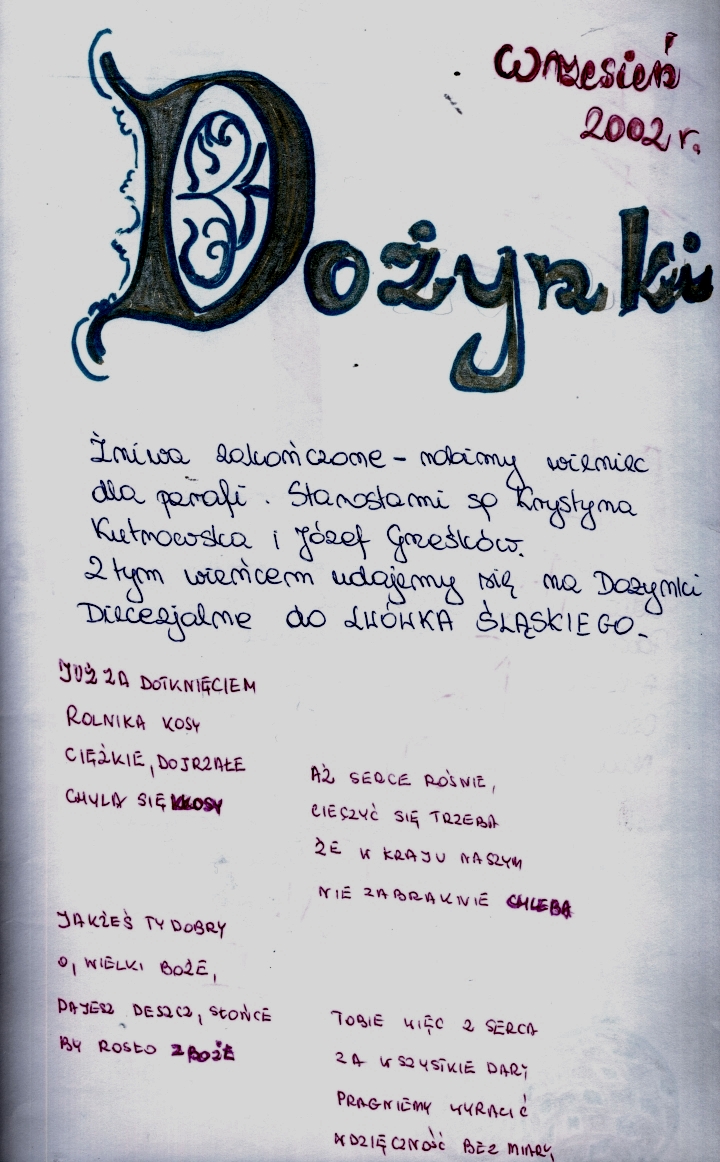 wrzesień
2002 r.
Dożynki
Żniwa zakończone – robimy wieniec
dla parafi. Starostami są Krystyna
Kutnowska i Józef Grześków.
Z tym wieńcem udajemy się na Dożynki
Diecezjalne do LWÓWKA ŚLĄSKIEGO.
JUŻ ZA DOTKNIĘCIEM
ROLNIKA KOSY
CIĘŻKIE, DOJRZAŁE
CHYLĄ SIĘ KŁOSY
AŻ SERCE ROŚNIE,
CIESZYĆ SIĘ TRZEBA
ŻE W KRAJU NASZYM
NIE ZABRAKNIE CHLEBA
JAKŻEŚ TY DOBRY
O, WIELKI BOŻE,
DAJESZ DESZCZ, SŁOŃCE
BY ROSŁO ZBOŻE
TOBIE WIĘC Z SERCA
ZA WSZYSTKIE DARY
PRAGNIEMY WYRAZIĆ
WDZIĘCZNOŚĆ BEZ MIARY